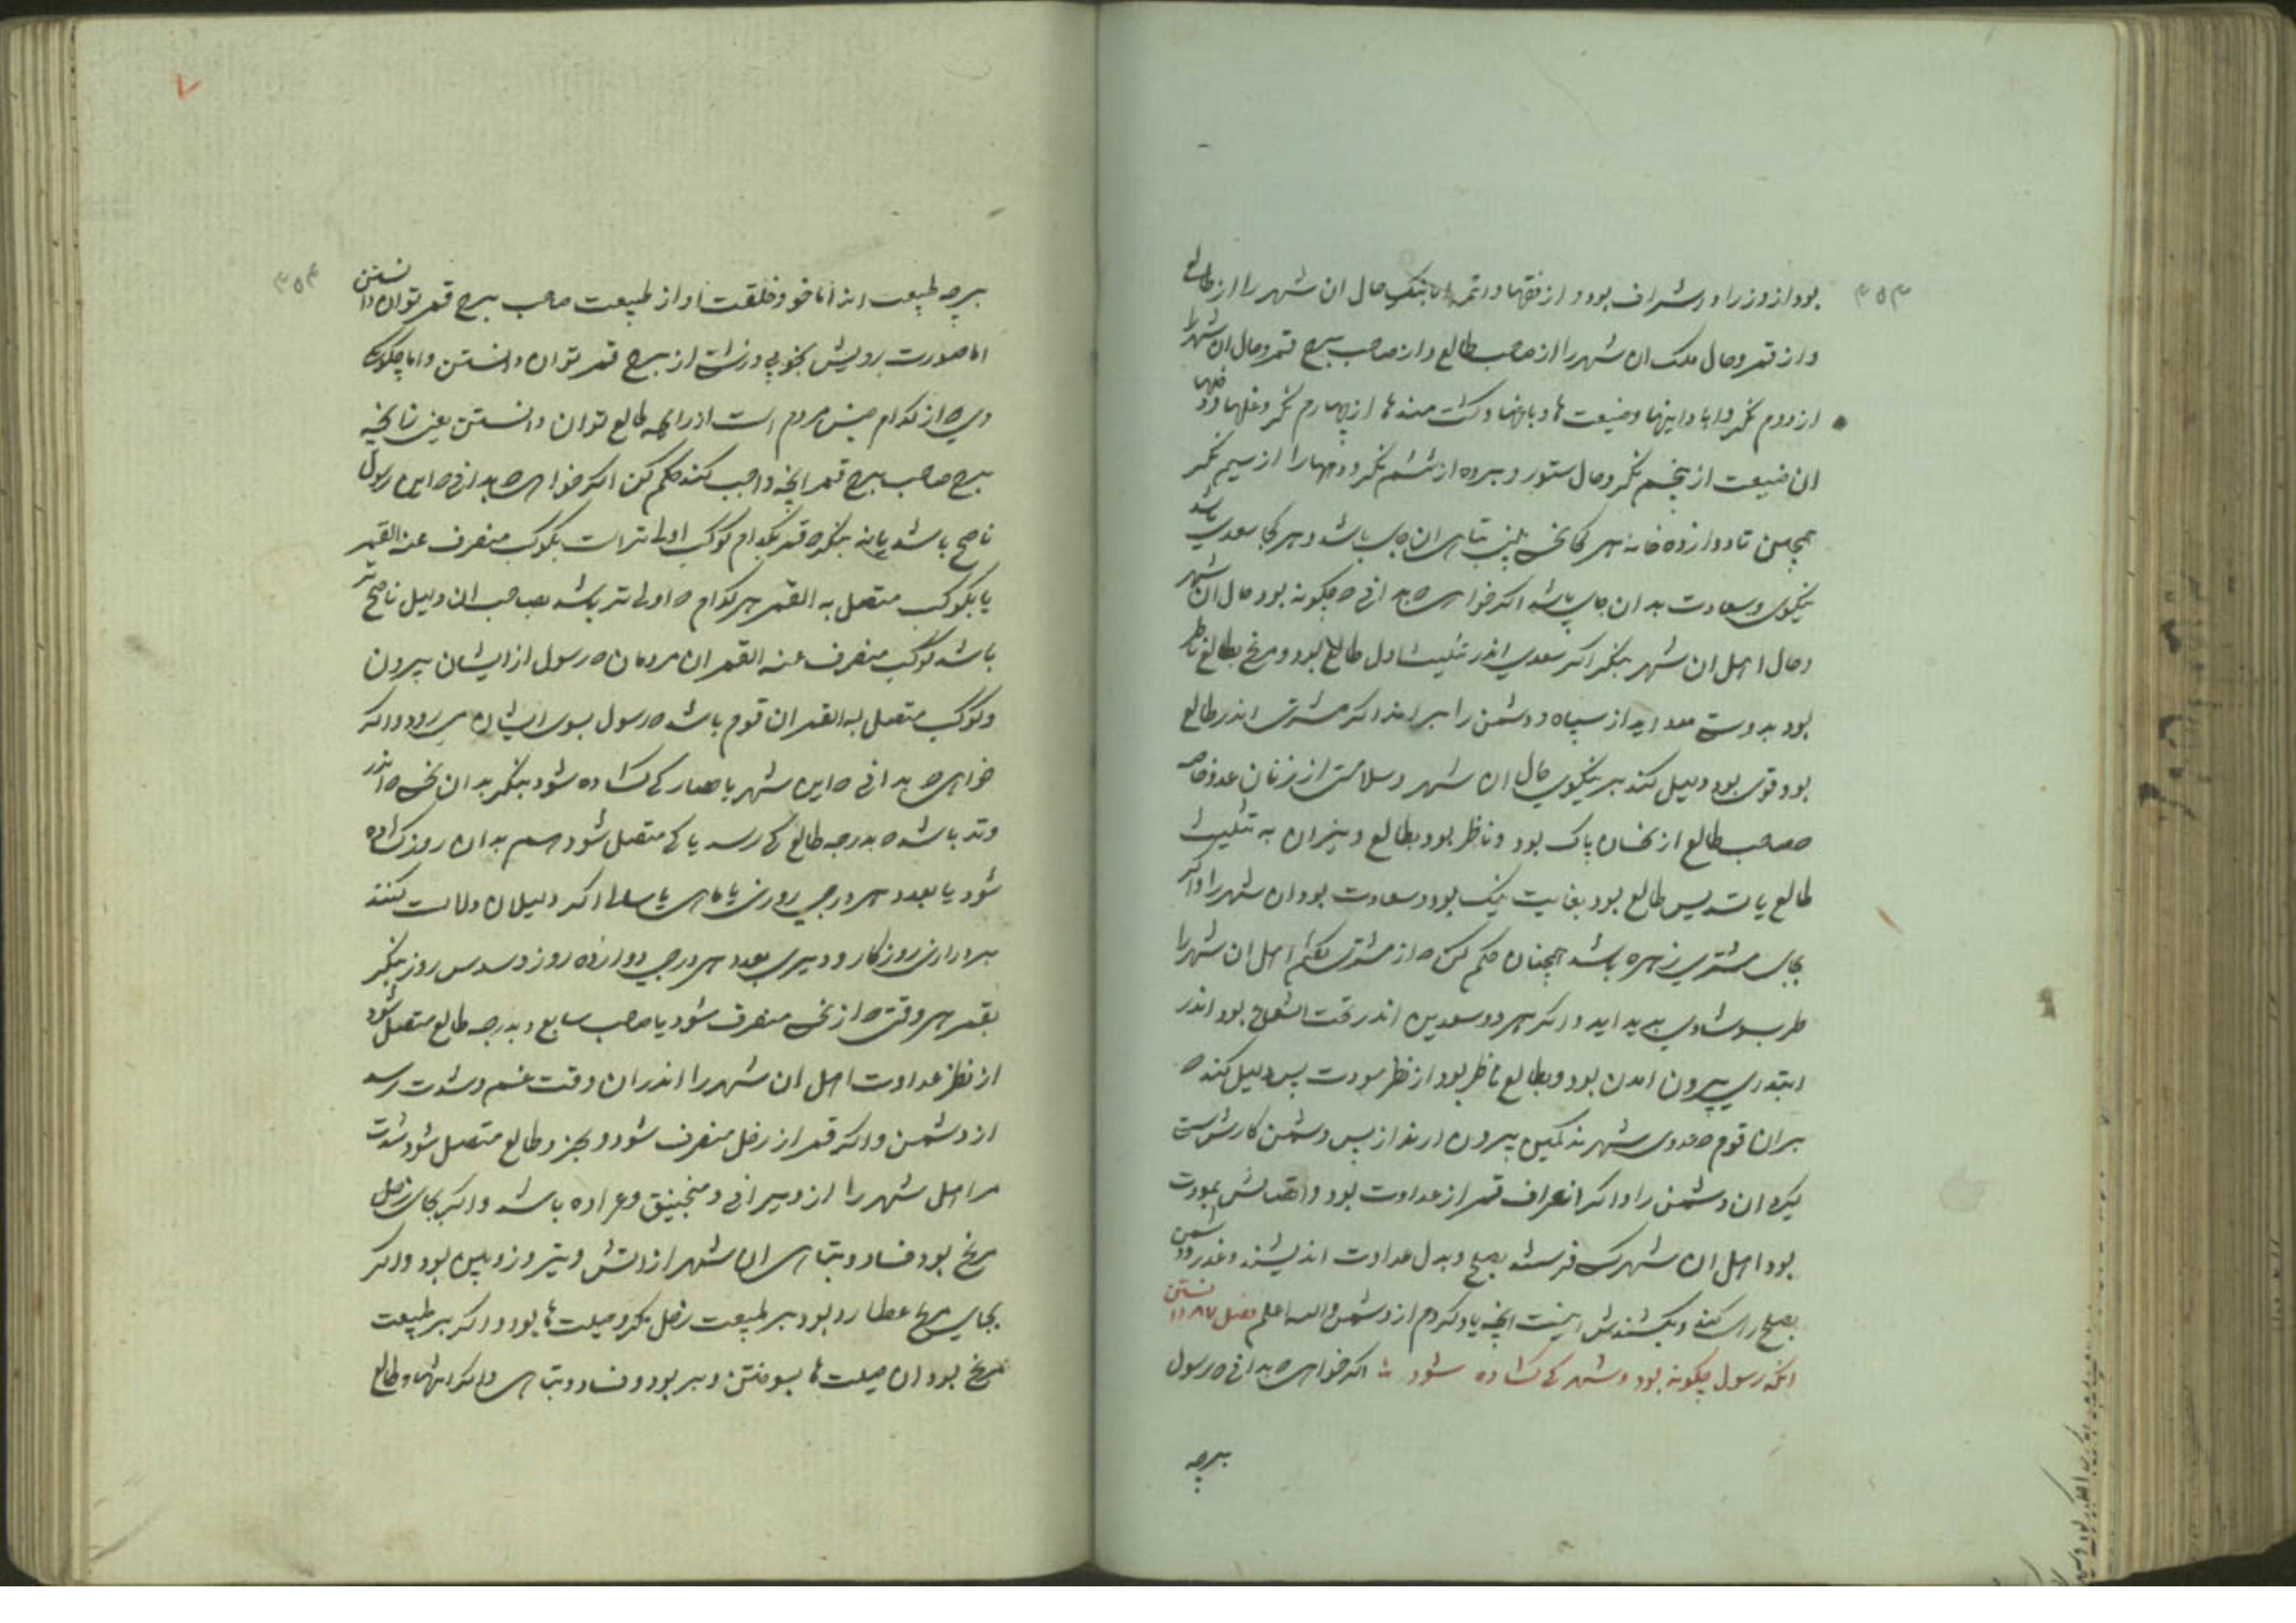 ۳۵۳
بود از وزرا و اشراف بود و از فقها و ائمه اما بنگر حال ان شهر را از طالع
و از قمر و حال ملک ان شهر را از صاحب طالع و از صاحب برج قمر و حال ان شهر را
از دوم نگر و ضیعت ها و باغها و کشت مندها از چهارم نگر و غلها و دخلها
ان ضیعت از پنجم نگر و حال ستور و برده از ششم نگر و را از سیم نگر
همچنین تا دوازده خانه هر کجا نحس بینی تباهی ان جای باشد و هر کجا سعدی باشد
نیکوی و سعادت بدان جای باشد اگر خواهی که بدانی که چگونه بود حال ان شهر
و حال اهل ان شهر بنگر اگر سعدی اندر تثلیث اول طالع بود و مریخ بطالع ناظر
بود بدوستی مدد اید از سپاه و دشمن را براند اگر مشتری اندر طالع
بود قوی بود دلیل کند بر نیکوی حال ان شهر و سلامتی از زیان عدو خاصه
صاحب طالع از نحسان پاک بود و ناظر بود بطالع و نیران به تثلیث
طالع یا تسدیس طالع بود بغایت نیک بود و سعادت بود ان شهر را و اگر
بجای مشتری زهره باشد همچنان حکم کن که از مشتری گفتم اهل ان شهر را
طرب و شادی پدید اید و اگر هر دو سعدین اندر تحت الشعاع بود اندر
ابتدای بیرون امدن بود و بطالع ناظر بود از نظر مودت پس دلیل کند که
بران قوم که در شهرند کمین بیرون ارند از پس دشمن کار سستی
گیرد ان دشمن را و اگر انصراف قمر از عداوت بود و اتصالش بمودت
بود اهل ان شهر کس فرستند بصلح و بدل عداوت اندیشند و غدر و دشمن
بصلح کنند و بکشندش اینست انچه یاد کردم از دشمن والله اعلم فصل ۸۷ دانستن
انکه رسول چگونه بود و شهر کی گشاده شود اگر خواهی که بدانی که رسول
برچه
۳۵۴
برچه طبیعت اند اما خو و خلقت او از طبیعت صاحب برج قمر توان دانستن
اما صورت رویش بخوبی و زشتی از برج قمر توان دانستن و اما چگونگی
وی که از کدام جنس مردم است از درجه طالع توان دانستن یعنی تا انچه
برج صاحب برج قمر انچه واجب کند حکم کن اگر خواهی که بدانی که این رسول
ناصح باشد یا نه بنگر که قمر بکدام کوکب اولی تر است بکوکب منصرف عنه القمر
یا بکوکب متصل به القمر هر کدام که اولی تر باشد بصاحب ان دلیل ناصح تر
باشد کوکب منصرف عنه القمر ان مردمان که رسول از ایشان بیرون
و کوکب متصل به القمر ان قوم باشد که رسول بسوی ایشان می رود و اگر
خواهی که بدانی که این شهر یا حصار کی گشاده شود بنگر بدان نحس که اندر
وتد باشد که بدرجه طالع کی رسد یا کی متصل شود هم بدان روز گشاده
شود یا بعدد هر درجی روزی یا ماهی یا سالی اگر دلیلان دلالت کنند
بر درازی روزگار و دیری بعدد هر درجی دوازده روز و سدس روز بنگر
بقمر هر وقتی که از نحس منصرف شود یا صاحب سابع و بدرجه طالع متصل شود
از نظر عداوت اهل ان شهر را اندران وقت غم و شدت رسد
از دشمن و اگر قمر از زحل منصرف شود و بجزو طالع متصل شود شدت
مر اهل شهر را از ویرانی و منجنیق و عراده باشد و اگر بجای زحل
مریخ بود فساد و تباهی ان شهر از اتش و تیر و زوبین بود و اگر
بجای مریخ عطارد بود بر طبیعت زحل مکر و حیلت ها بود و اگر بر طبیعت
مریخ بود ان حیلت ها بسوختن و بر بود و فساد و تباهی و اگر انتها و طالع